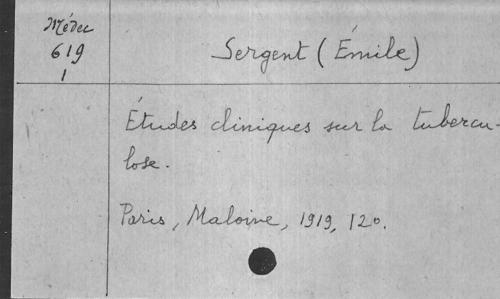 Médec
619
1
Sergent (Émile)
Études cliniques sur la tubercu-
lose.
Paris, Maloine, 1919, 12o.